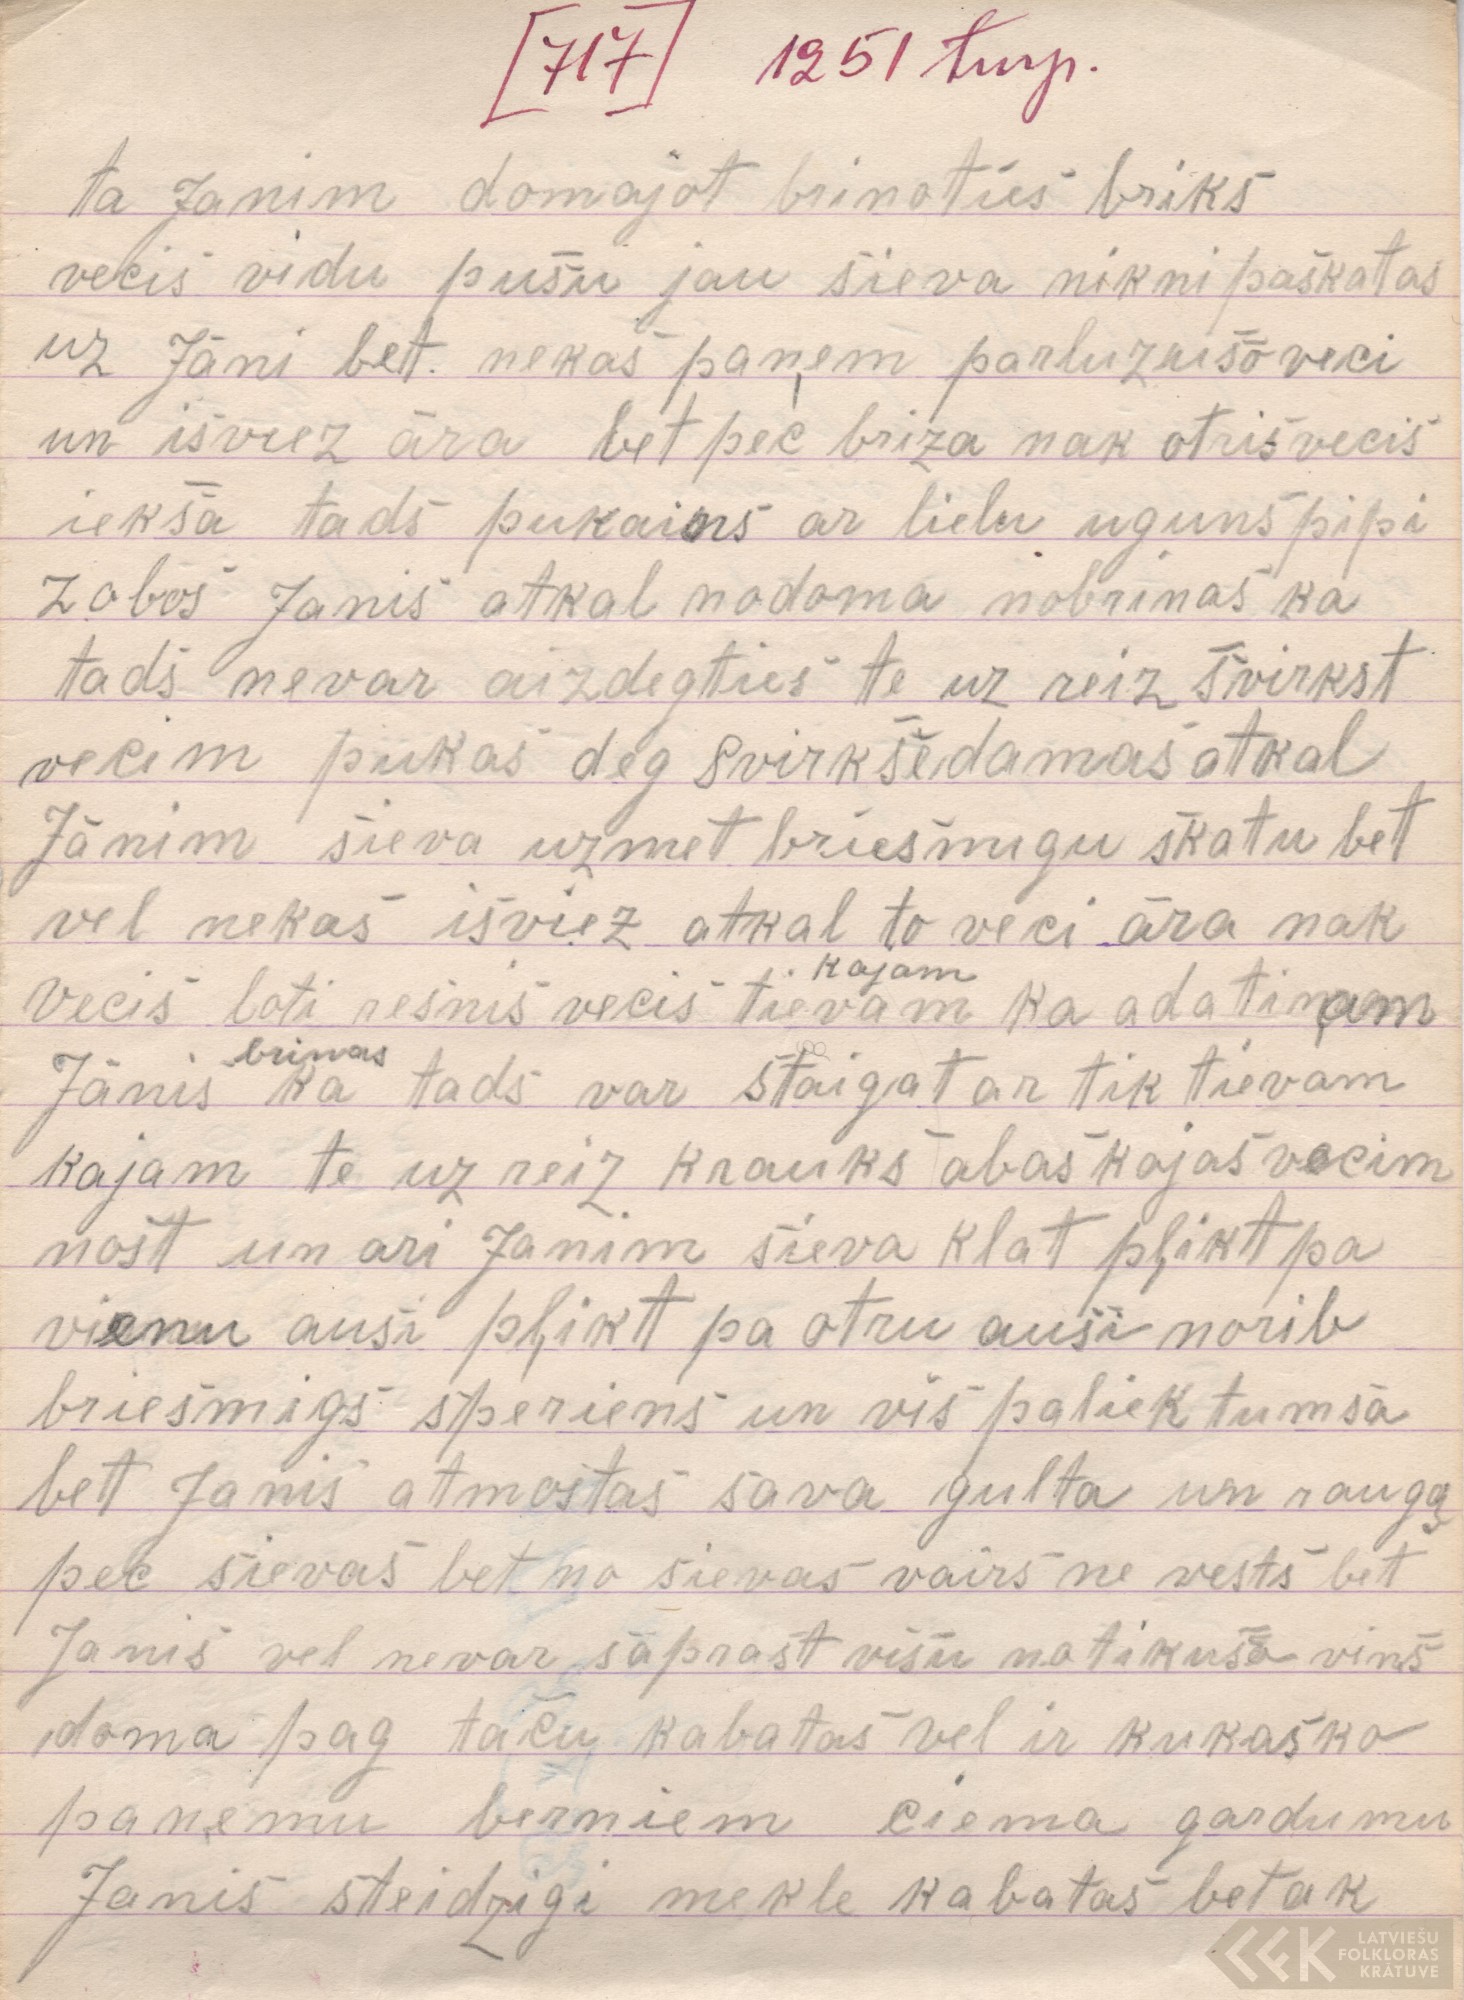 [717] 1251 turp.
ta Janim domajot brinoties briks
vecis vidu pušu jau sieva nikni paskatas
uz Jāni bet. nekas paņem parluzušo veci
un isviez āra bet pec briza nak otris vecis
iekšā tads pukains ar lielu uguns pipi
zobos Janis atkal nodoma nobrinas ka
tads nevar aizdegties te uz reiz švirkst
vecim pukas deg svirkšēdamas atkal
Jānim sieva uzmet briesmigu skatu bet
vel nekas isviez atkal to veci āra nak
kajam
vecis loti resnis vecis tievam ka adatiņam
brinas
Jānis ka tads var staigat ar tik tievam
kajam te uz reiz krauks abas kajas vecim
nost un ari Janim sieva klat pļikt pa
vienu ausi pļikt pa otru ausi norib
briesmigs speriens un vis paliek tumsa
bet Janis atmostas sava gulta un rauga
pec sievas bet no sievas vairs ne vests bet
Janis vel nevar saprast visu notikušo vinš
doma pag taču kabatas vel ir kukas ko
paņemu berniem ciema gardumu
Janis steidzigi mekle kabatas bet ak
LATVIEŠU
FOLKLORAS
KRĀTUVE